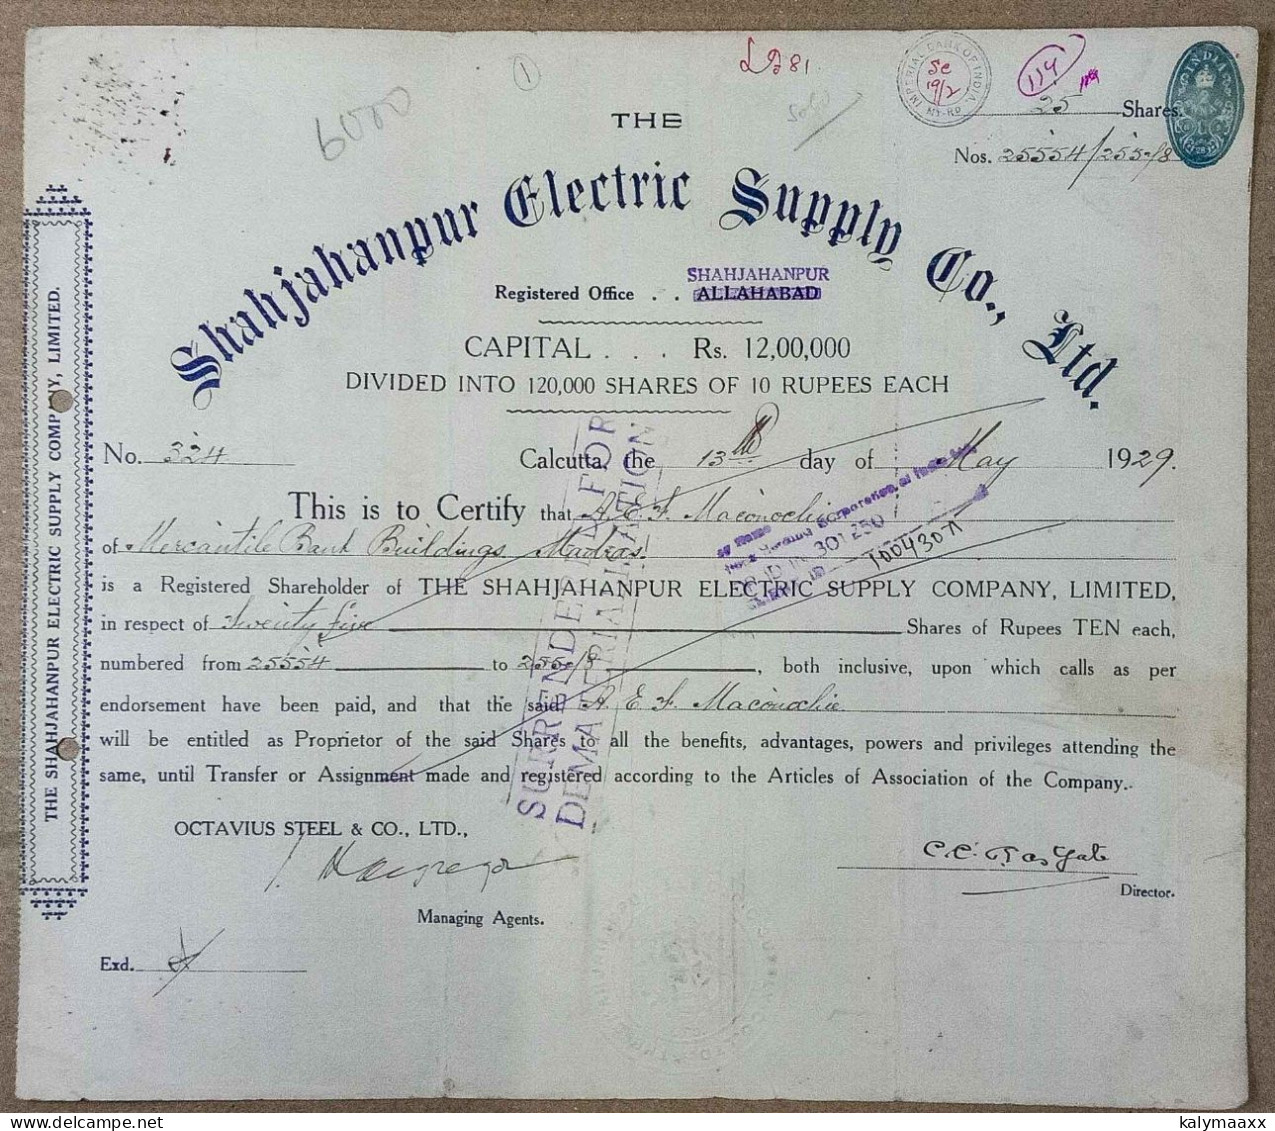 6000
1
81
IMPERIAL BANK OF INDIA
19/2
114
25 Shares.
INDIA
Nos. 25554/25578
THE
Shahjahanpur Electric Supply Co., Ltd.
SHAHJAHANPUR
Registered Office . . ALLAHABAD
CAPITAL . . . Rs. 12,00,000
DIVIDED INTO 120,000 SHARES OF 10 RUPEES EACH
No. 324 Calcutta, the 13th day of May 1929.
This is to Certify that A. E. F. Maconochie
of Mercantile Bank Buildings, Madras.
is a Registered Shareholder of THE SHAHJAHANPUR ELECTRIC SUPPLY COMPANY, LIMITED,
in respect of Twenty five Shares of Rupees TEN each,
numbered from 25554 to 25578, both inclusive, upon which calls as per
endorsement have been paid, and that the said A. E. F. Maconochie
will be entitled as Proprietor of the said Shares to all the benefits, advantages, powers and privileges attending the
same, until Transfer or Assignment made and registered according to the Articles of Association of the Company.
SURRENDERED FOR
DEMATERIALISATION
301250
10043071
OCTAVIUS STEEL & CO., LTD.,
Managing Agents.
Director.
Exd.
THE SHAHJAHANPUR ELECTRIC SUPPLY COMPANY, LIMITED.
delcampe.net
kalymaaxx